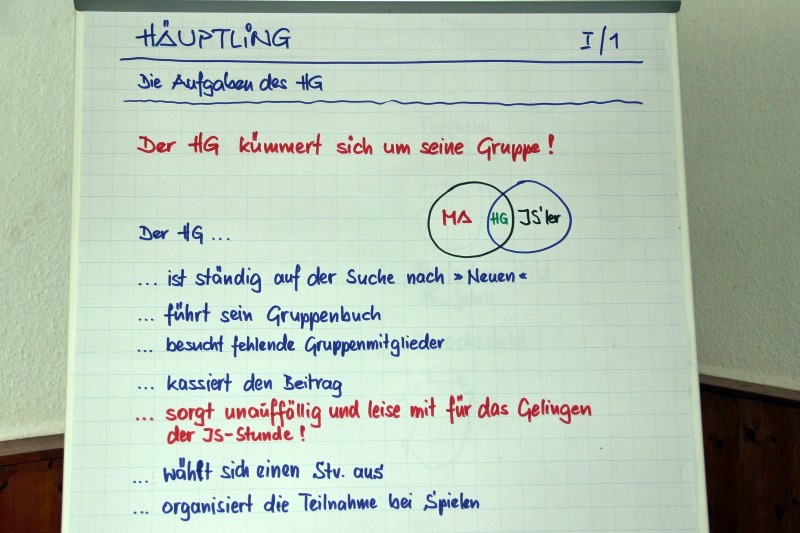 HÄUPTLING I/1
Die Aufgaben des HG
Der HG kümmert sich um seine Gruppe!
MA HG JS'ler
Der HG ...
... ist ständig auf der Suche nach »Neuen«
... führt sein Gruppenbuch
... besucht fehlende Gruppenmitglieder
... kassiert den Beitrag
... sorgt unauffällig und leise mit für das Gelingen
der JS-Stunde!
... wählt sich einen Stv. aus
... organisiert die Teilnahme bei Spielen